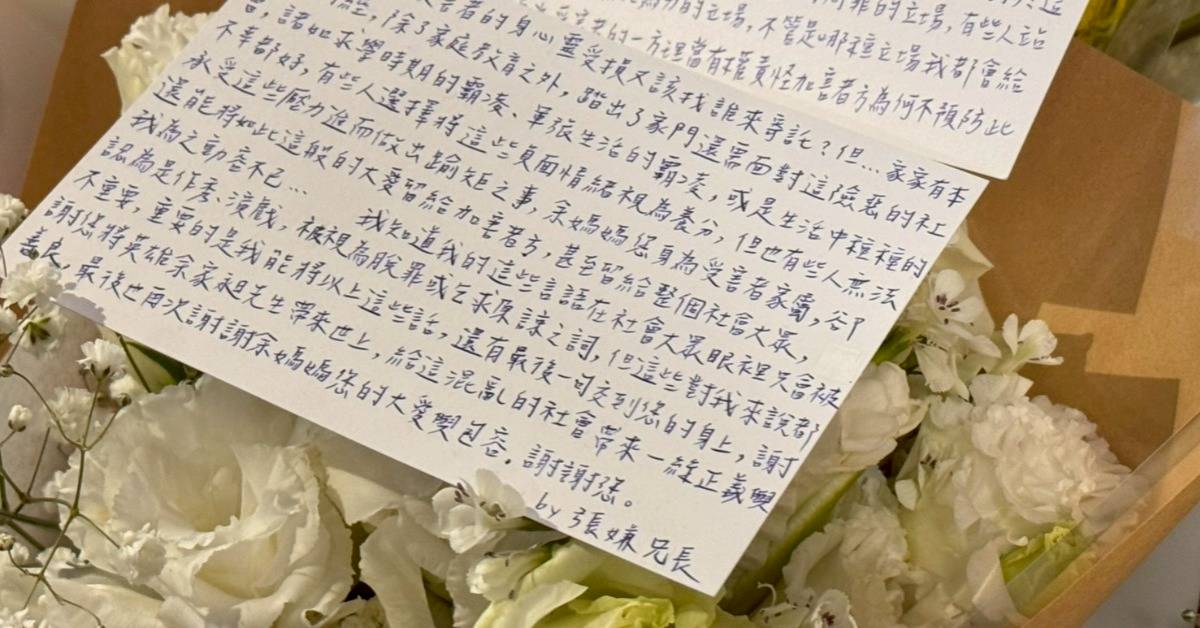 罪的立場,有些人站
的立場,不管是哪種立場我都會給
的一方理當有權責怪加害者方為何不預防此
害者的身心靈受損又該找誰來尋託?但…家家有本
經,除了家庭教育之外,踏出了家門還需面對這險惡的社
會,諸如求學時期的霸凌、單張生活的霸凌,或是生活中種種的
不幸都好,有些人選擇將這些負面情緒視為養分,但也有些人無法
承受這些壓力進而做出踰矩之事,余媽媽您身為受害者家屬,卻
還能將如此這般的大愛留給加害者方,甚至留給整個社會大眾,
我為之動容不已… 我知道我的這些言語在社會大眾眼裡只會被
認為是作秀、演戲,被視為脫罪或乞求原諒之詞,但這些對我來說都
不重要,重要的是我能將以上這些話,還有最後一句交到您的身上,謝
謝您將英雄余家昶先生帶來世上,給這混亂的社會帶來一絲正義與
善良,最後也再次謝謝余媽媽您的大愛與包容,謝謝您。
by 張嫌 兄長